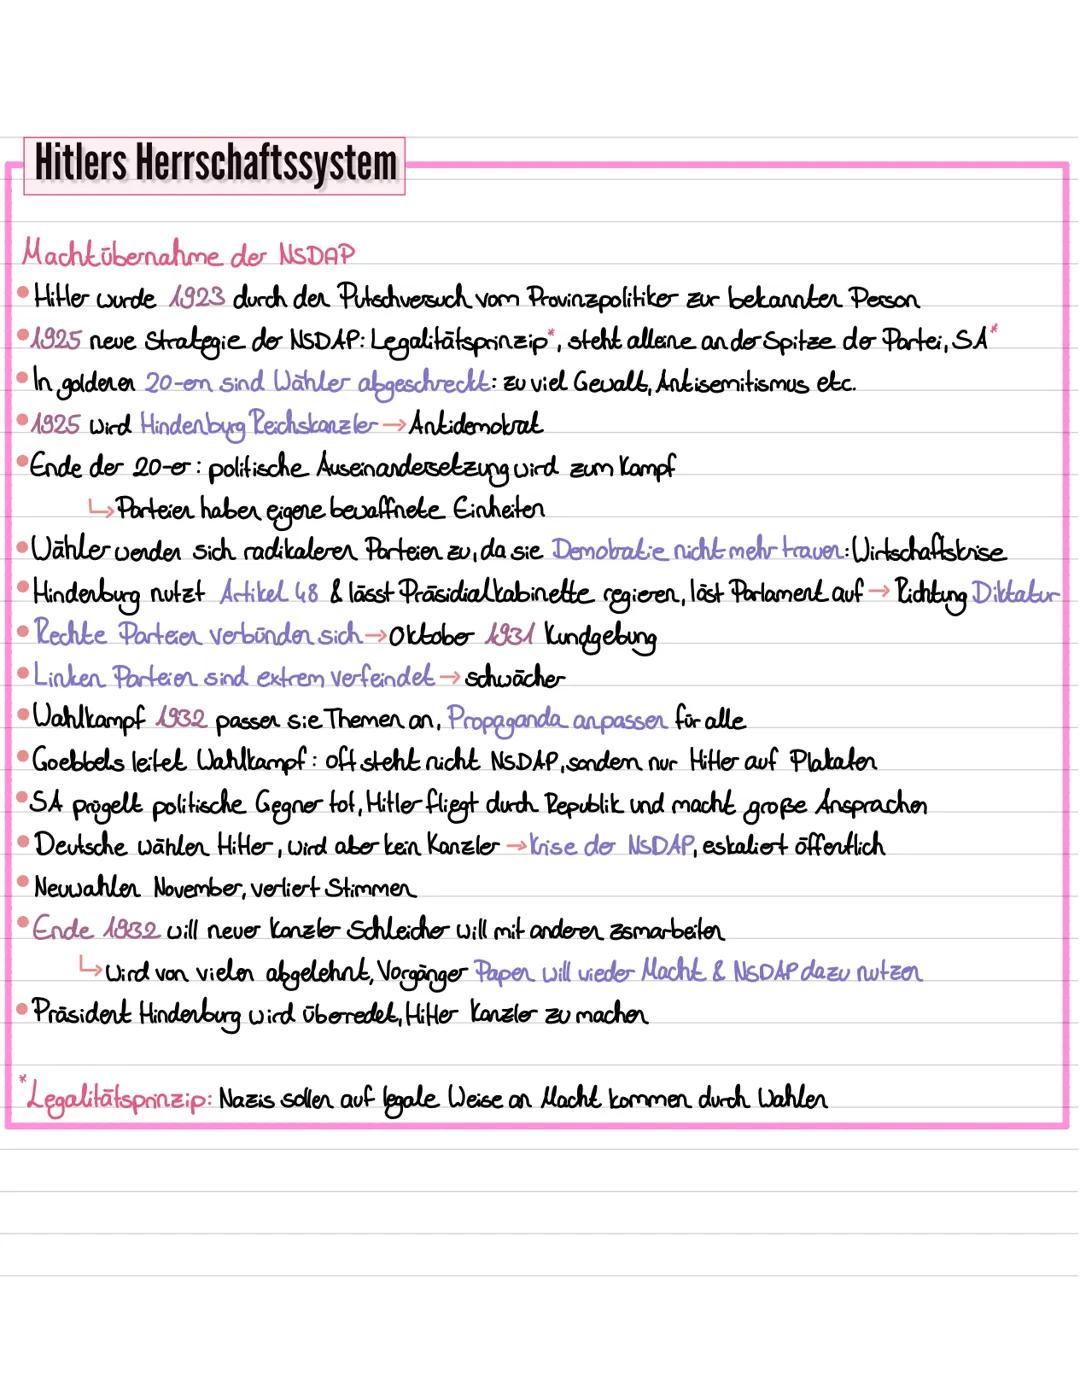 Hitlers Herrschaftssystem
Machtübernahme der NSDAP
• Hitler wurde 1923 durch den Putschversuch vom Provinzpolitiker zur bekannten Person
• 1925 neue Strategie der NSDAP: Legalitätsprinzip*, steht alleine an der Spitze der Partei, SA*
• In goldenen 20-ern sind Wähler abgeschreckt: zu viel Gewalt, Antisemitismus etc.
• 1925 wird Hindenburg Reichskanzler → Antidemokrat
• Ende der 20-er: politische Auseinandersetzung wird zum Kampf
↳ Parteien haben eigene bewaffnete Einheiten
• Wähler wenden sich radikaleren Parteien zu, da sie Demokratie nicht mehr trauen: Wirtschaftskrise
• Hindenburg nutzt Artikel 48 & lässt Präsidialkabinette regieren, löst Parlament auf → Richtung Diktatur
• Rechte Parteien verbünden sich → Oktober 1931 Kundgebung
• Linken Parteien sind extrem verfeindet → schwächer
• Wahlkampf 1932 passen sie Themen an, Propaganda anpassen für alle
• Goebbels leitet Wahlkampf: oft steht nicht NSDAP, sondern nur Hitler auf Plakaten
• SA prügelt politische Gegner tot, Hitler fliegt durch Republik und macht große Ansprachen
• Deutsche wählen Hitler, wird aber kein Kanzler → Krise der NSDAP, eskaliert öffentlich
• Neuwahlen November, verliert Stimmen
• Ende 1932 will neuer Kanzler Schleicher will mit anderen zsmarbeiten
↳ Wird von vielen abgelehnt, Vorgänger Papen will wieder Macht & NSDAP dazu nutzen
• Präsident Hindenburg wird überredet, Hitler Kanzler zu machen
*Legalitätsprinzip: Nazis sollen auf legale Weise an Macht kommen durch Wahlen